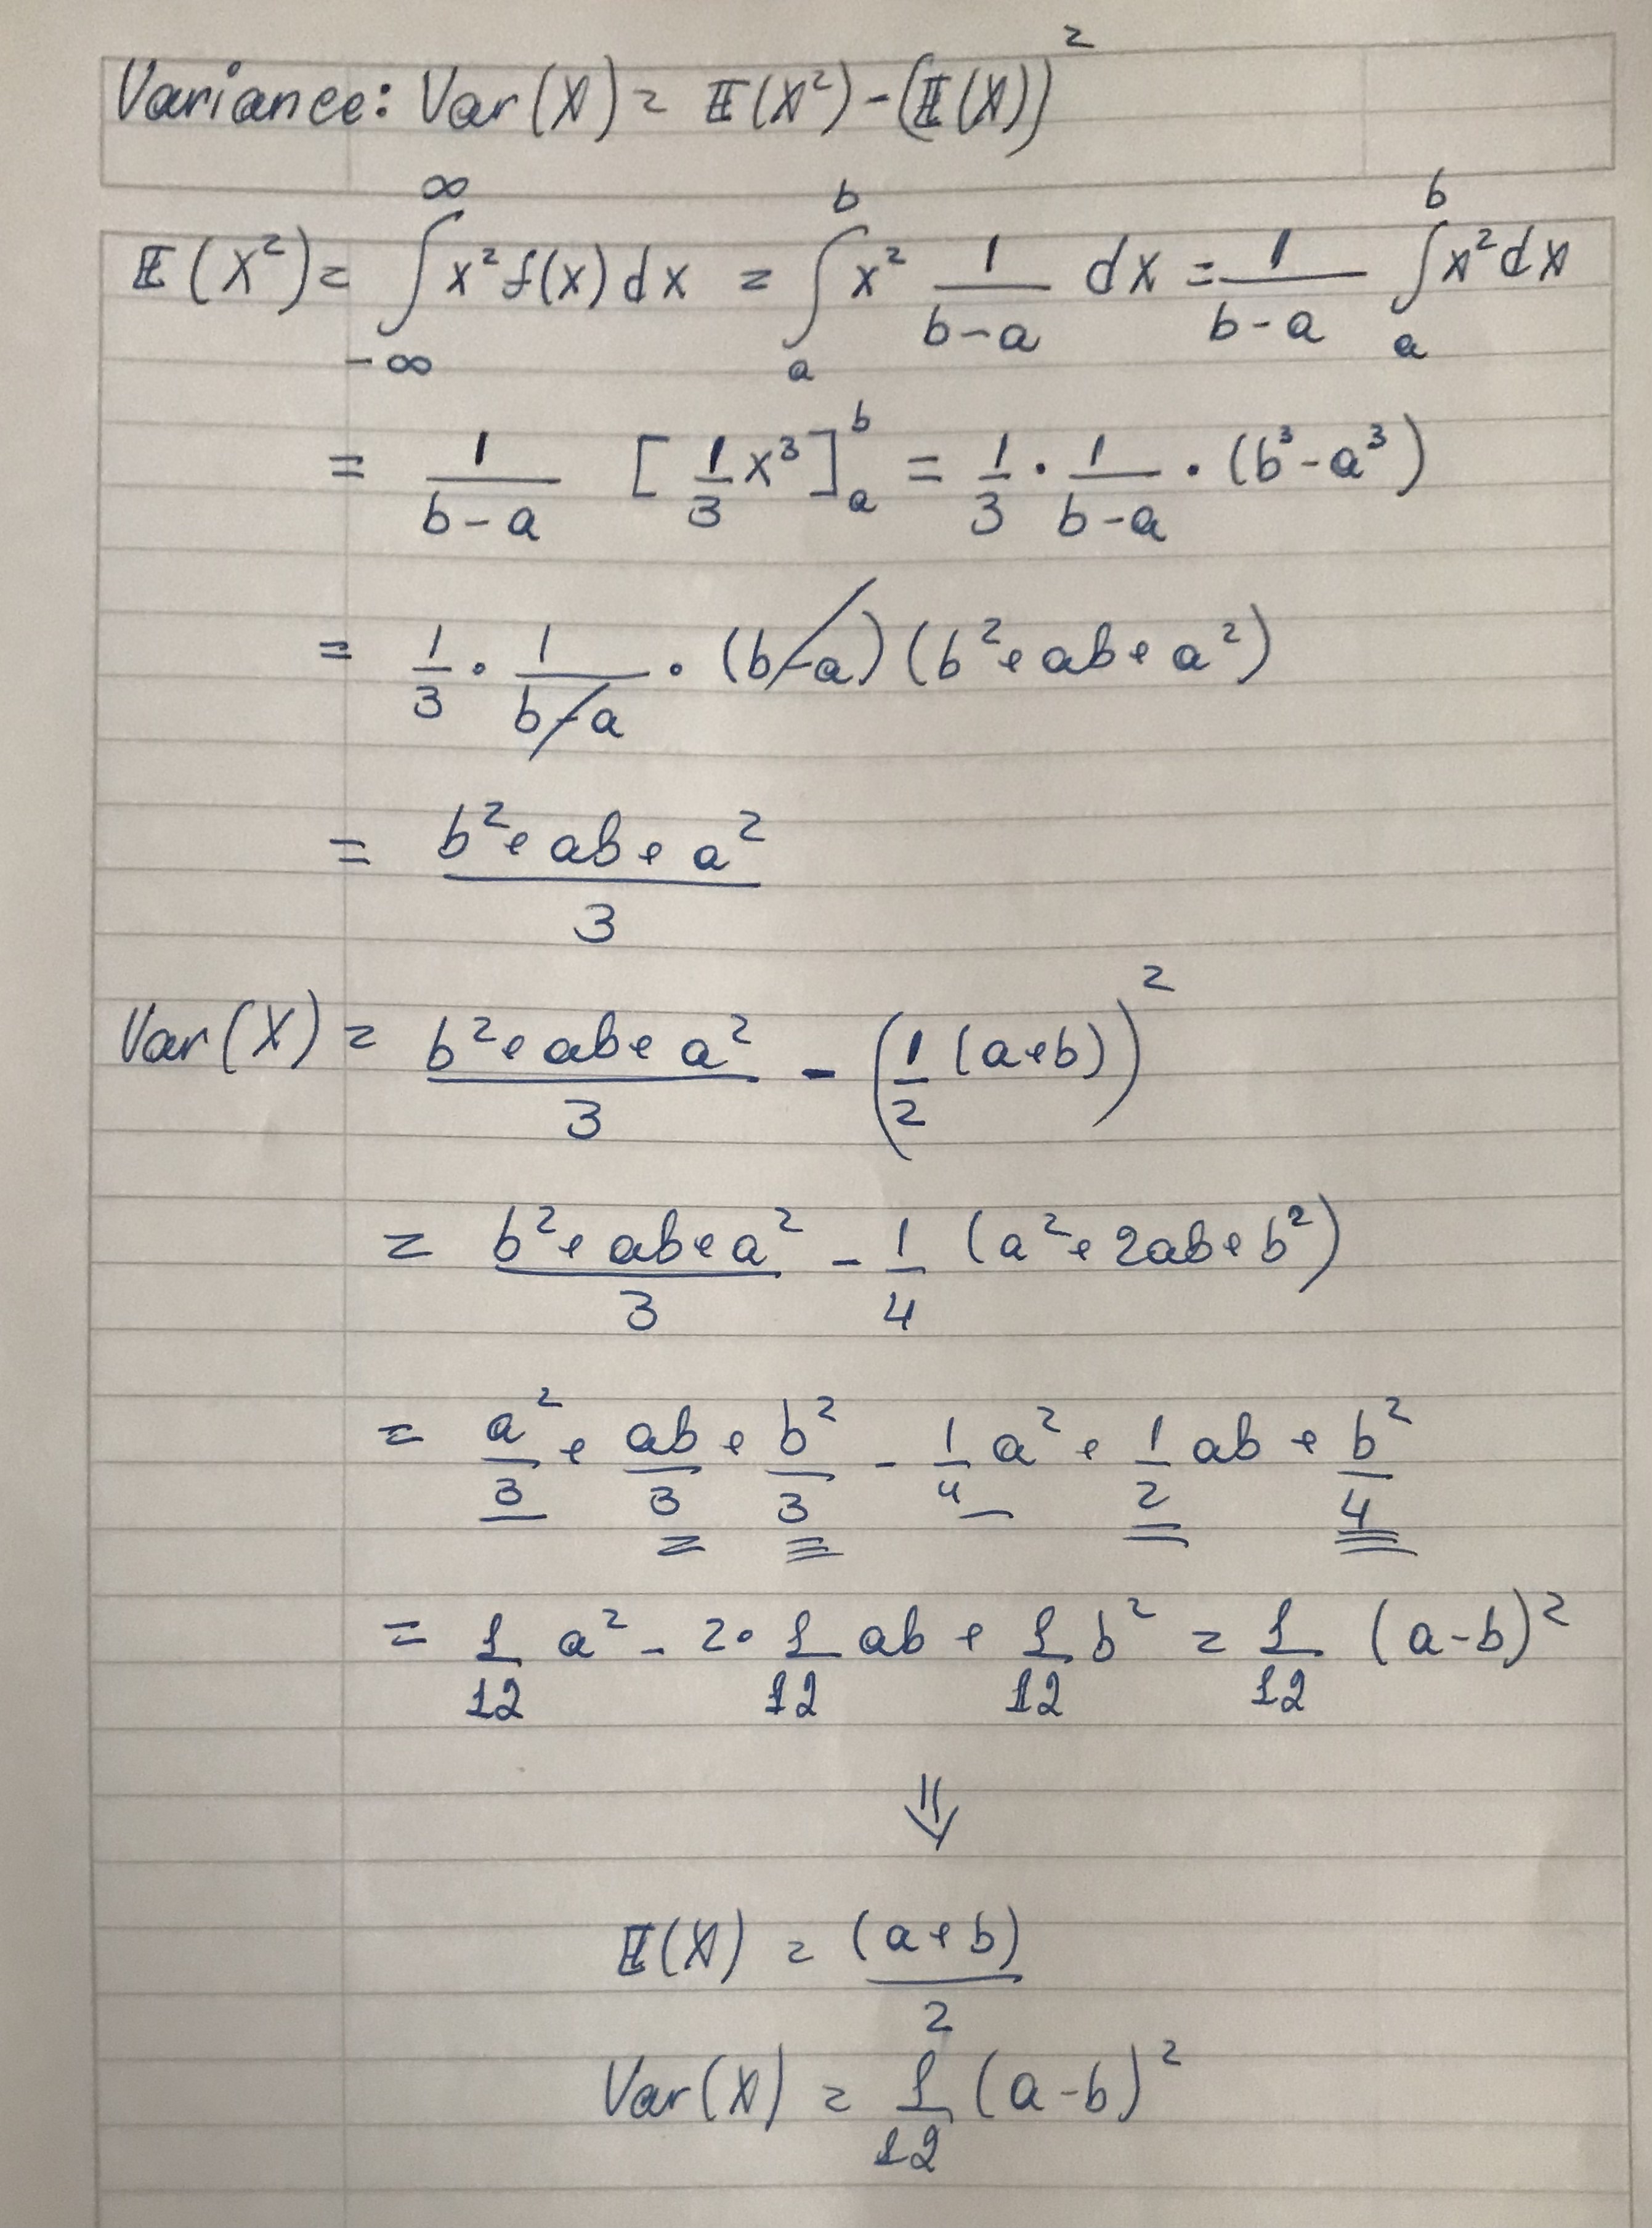 Variance: Var(X) = 𝔼(X²) - (𝔼(X))²
𝔼(X²) = ∫_{-∞}^{∞} x² f(x) dx = ∫_a^b x² 1/(b-a) dx = 1/(b-a) ∫_a^b x² dx
= 1/(b-a) [1/3 x³]_a^b = 1/3 · 1/(b-a) · (b³-a³)
= 1/3 · 1/(b-a) · (b-a)(b²+ab+a²)
= (b²+ab+a²)/3
Var(X) = (b²+ab+a²)/3 - (1/2 (a+b))²
= (b²+ab+a²)/3 - 1/4 (a²+2ab+b²)
= a²/3 + ab/3 + b²/3 - 1/4 a² + 1/2 ab + b²/4
= 1/12 a² - 2· 1/12 ab + 1/12 b² = 1/12 (a-b)²
⇓
𝔼(X) = (a+b)/2
Var(X) = 1/12 (a-b)²